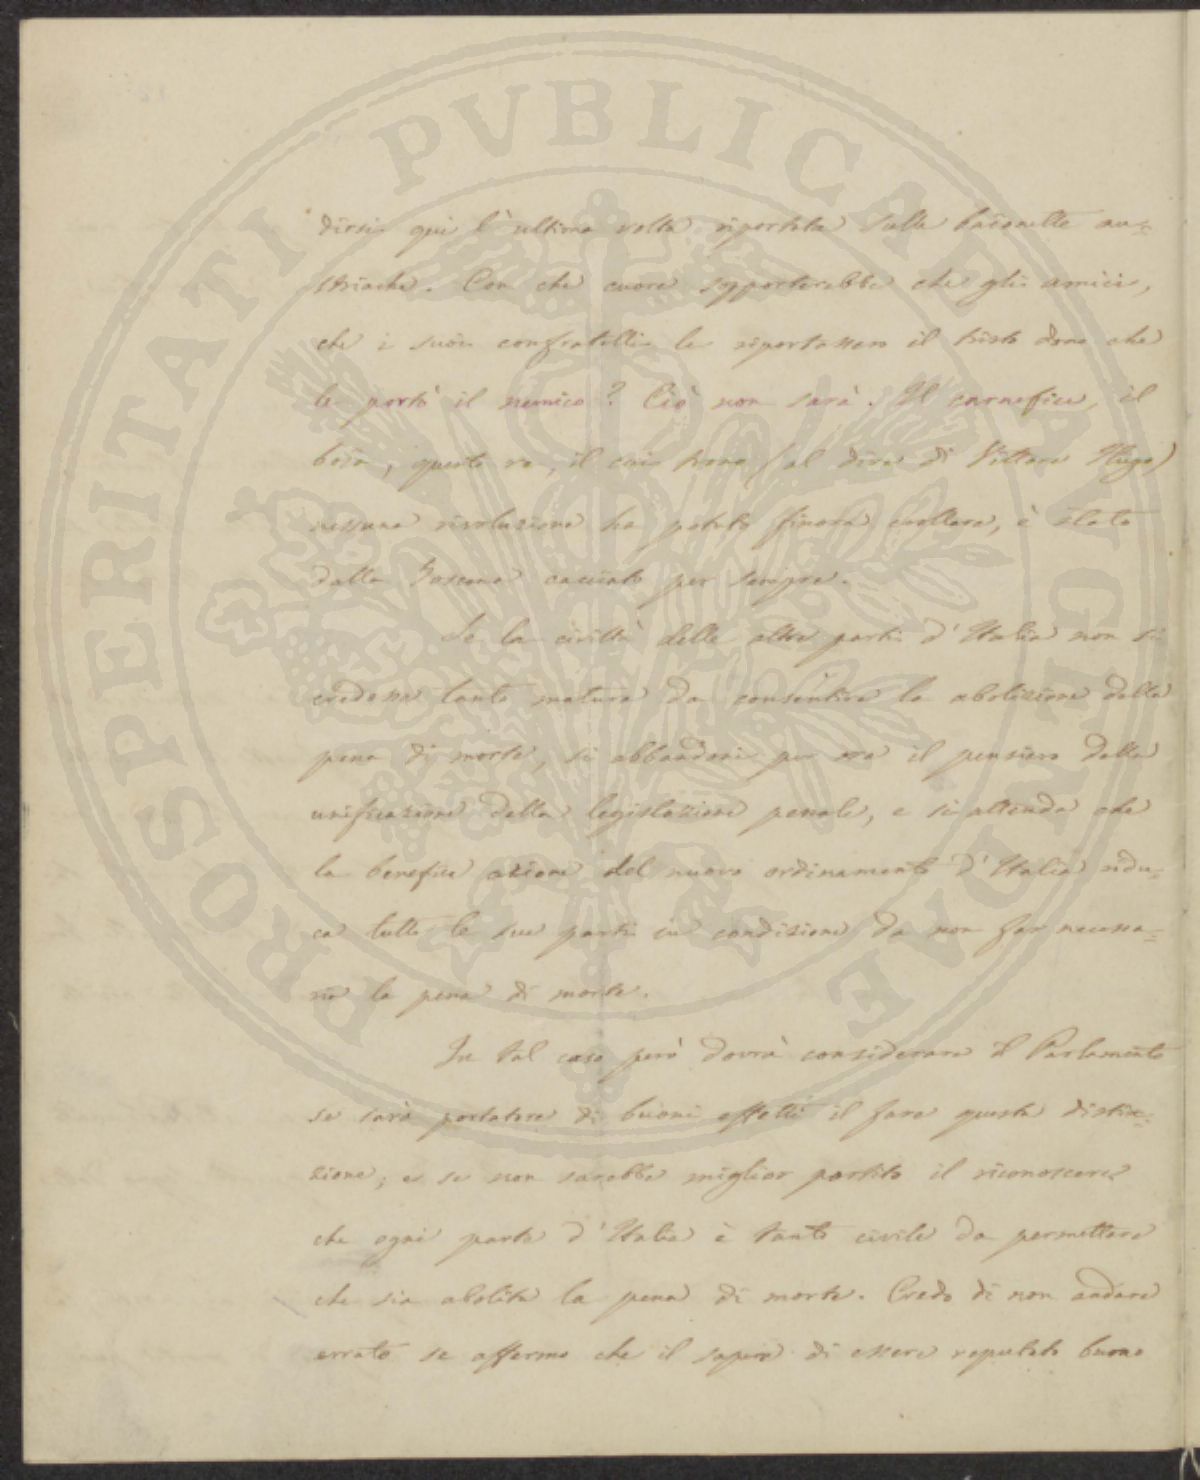 dirsi qui l'ultima volta riportata sulle baionette au=
striache. Con che cuore sopporterebbe che gli amici,
che i suoi confratelli le riportassero il tristo dono che
le portò il nemico? Ciò non sarà. Il carnefice, il
boia, questo re, il cui trono (al dire di Vittore Hugo)
nessuna rivoluzione ha potuto finora crollare, è stato
dalla Toscana cacciato per sempre.
Se la civiltà delle altre parti d'Italia non si
credesse tanto matura da consentire la abolizione della
pena di morte, si abbandoni per ora il pensiero della
unificazione della legislazione penale, e si attenda che
la benefica azione del nuovo ordinamento d'Italia ridu=
ca tutte le sue parti in condizione da non far necessa=
ria la pena di morte.
In tal caso però dovrà considerare il Parlamento
se sarà portatore di buoni effetti il fare questa distin=
zione; e se non sarebbe miglior partito il riconoscere
che ogni parte d'Italia è tanto civile da permettere
che sia abolita la pena di morte. Credo di non andare
errato se affermo che il sapere di essere reputato buono
PROSPERITATI PVBLICAE AVGENDAE